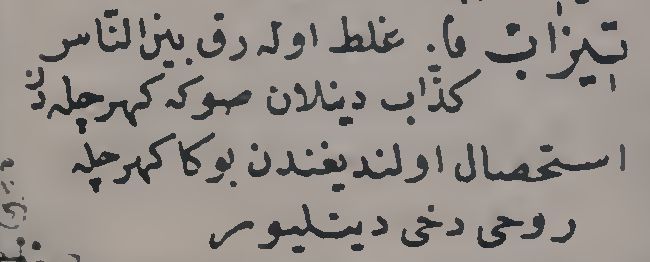 تیزاب فا. غلط اوله رق بین الناس
کذاب دینلان صوکه کهرچله دن
استحصال اولندیغندن بوکا کهرچله
روحی دخی دینلیور